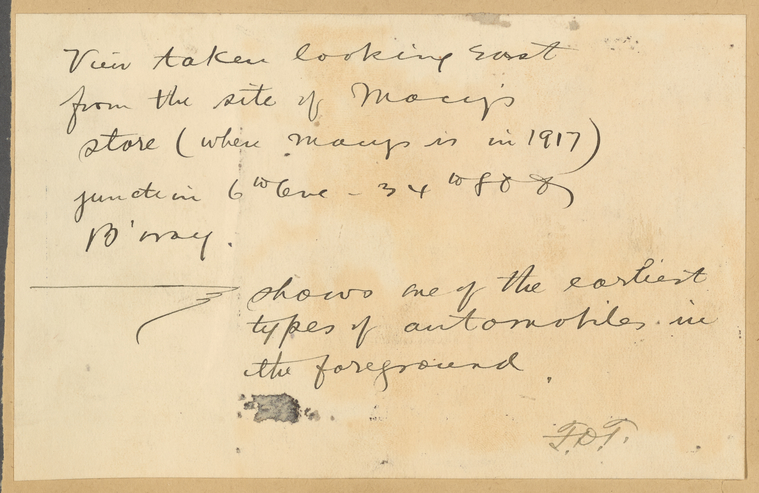 View taken looking East
from the site of Macy's
store (where Macys is in 1917)
junction 6th Ave - 34th St &
B'way.
shows one of the earliest
types of automobiles in
the foreground.